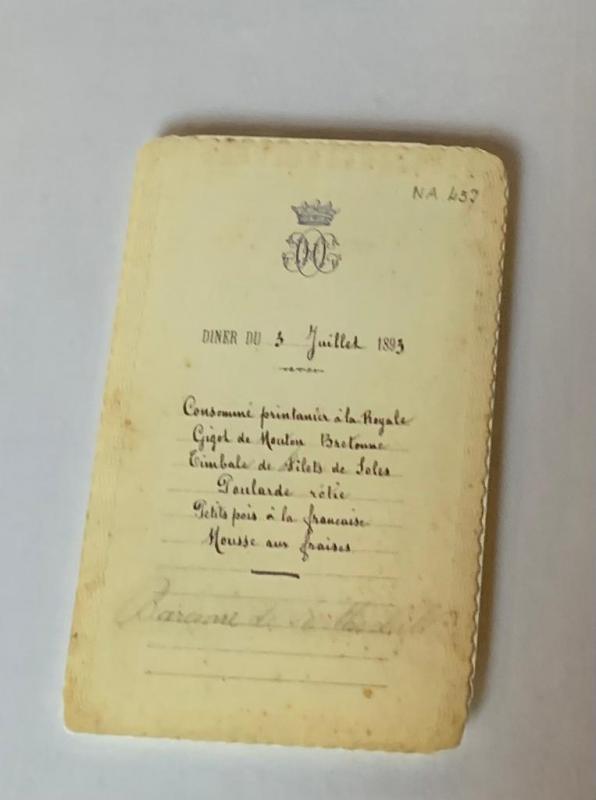 NA 437
DINER DU 3 Juillet 1893
Consommé printanier à la Royale
Gigot de Mouton Bretonne
Timbale de Filets de Soles
Poularde rôtie
Petits pois à la française
Mousse aux fraises
Baronne de